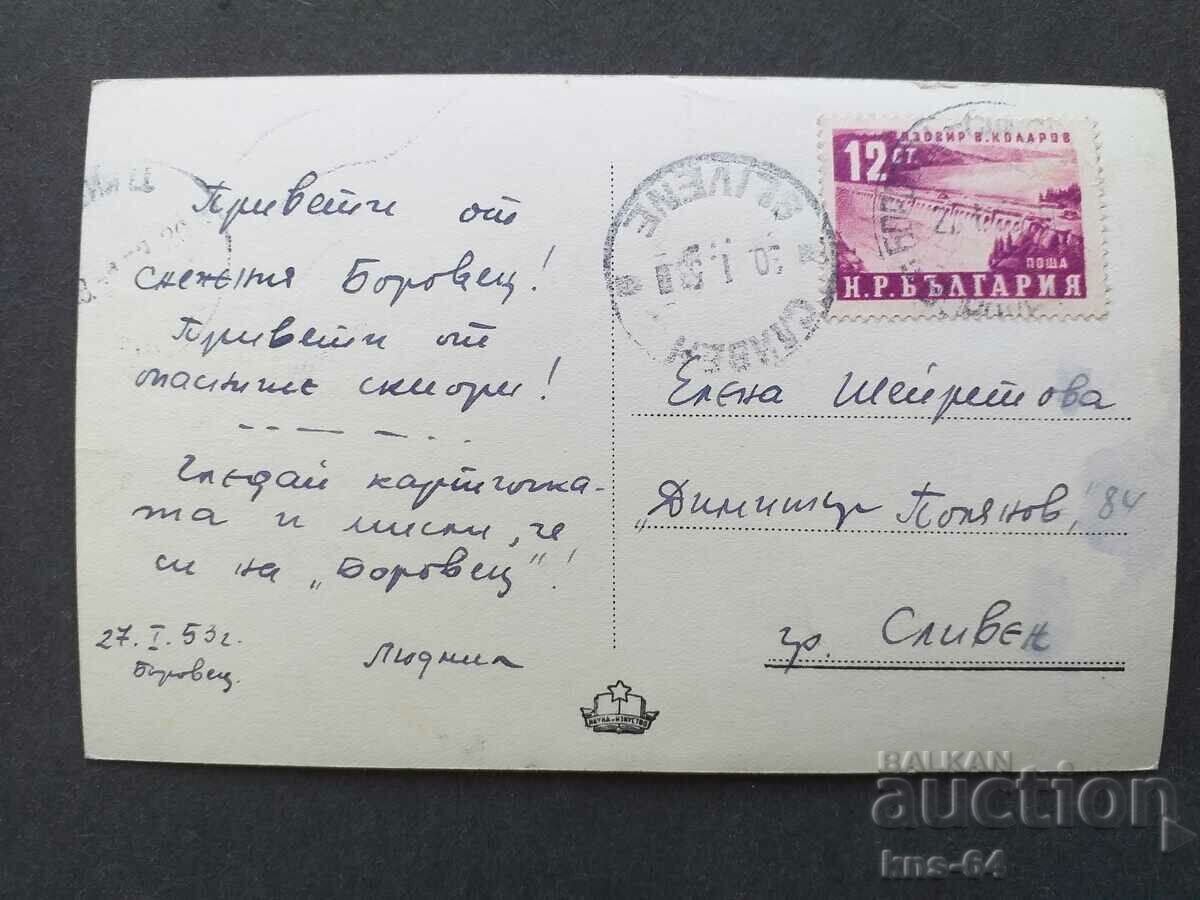 Привети от
снежния Боровец!
Привети от
опасните скиори!
Гледай картичка-
та и мисли, че
си на „Боровец"!
27.I.53г.
Боровец.
Людмил
SLIVENE
СЛИВЕН
ЯЗОВИР В. КОЛАРОВ
12 СТ.
ПОША
Н.Р.БЪЛГАРИЯ
Елена Шейретова
„Димитър Полянов" 84
гр. Сливен
НАУКА И ИЗКУСТВО
BALKAN
auction
kns-64